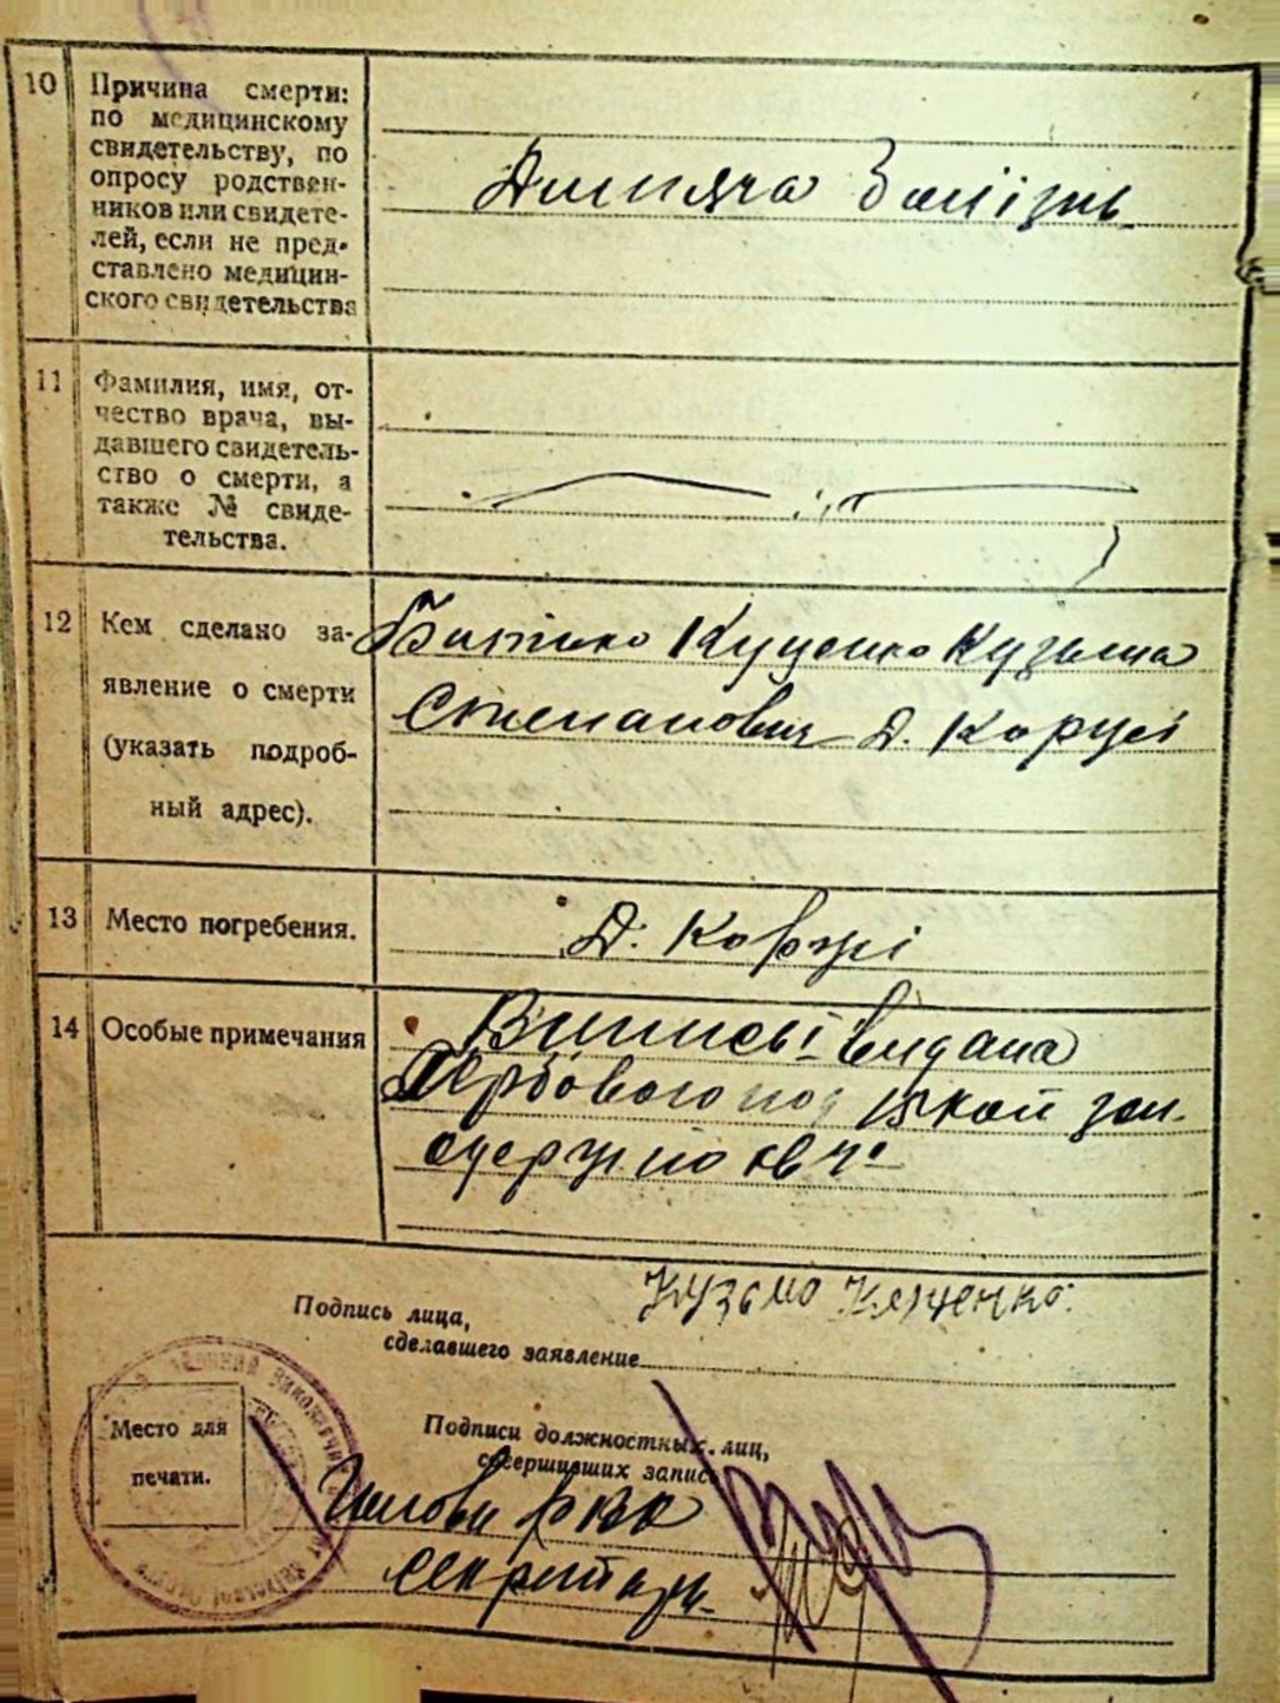 10 Причина смерти:
по медицинскому
свидетельству, по
опросу родствен-
ников или свидете-
лей, если не пред-
ставлено медицин-
ского свидетельства
Дитяча
11 Фамилия, имя, от-
чество врача, вы-
давшего свидетель-
ство о смерти, а
также № свиде-
тельства.
12 Кем сделано за-
явление о смерти
(указать подроб-
ный адрес).
Батько Куценко Кузьма
Степанович д.
13 Место погребения.
Д.
14 Особые примечания
Виписы видана
Кузьмо
Подпись лица,
сделавшего заявление
Место для
печати.
Подписи должностных лиц,
совершивших запись
Голова
Секретарь